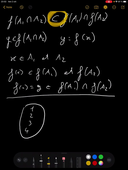 f(A₁∩A₂) ⊂ f(A₁)∩f(A₂)
y ∈ f(A₁∩A₂) y = f(x)
x ∈ A₁ et A₂
f(x) ∈ f(A₁) et f(A₂)
f(x) = y ∈ f(A₁) ∩ f(A₂)
1
2
3
4